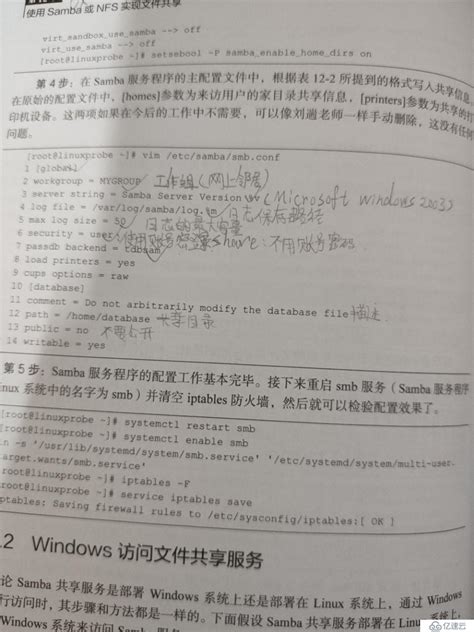 使用 Samba 或 NFS 实现文件共享
virt_sandbox_use_samba --> off
virt_use_samba --> off
[root@linuxprobe ~]# setsebool -P samba_enable_home_dirs on
第 4 步：在 Samba 服务程序的主配置文件中，根据表 12-2 所提到的格式写入共享信息。
在原始的配置文件中，[homes]参数为来访用户的家目录共享信息，[printers]参数为共享的打
印机设备。这两项如果在今后的工作中不需要，可以像刘遄老师一样手动删除，这没有任何
问题。
[root@linuxprobe ~]# vim /etc/samba/smb.conf
1 [global]
2 workgroup = MYGROUP 工作组(网上邻居)
3 server string = Samba Server Version %v (Microsoft Windows 2003)
4 log file = /var/log/samba/log.%m 日志保存路径
5 max log size = 50 日志的最大容量
6 security = user 使用账号密码 share:不用账号密码
7 passdb backend = tdbsam
8 load printers = yes
9 cups options = raw
10 [database]
11 comment = Do not arbitrarily modify the database file 描述
12 path = /home/database 共享目录
13 public = no 不要公开
14 writable = yes
第 5 步：Samba 服务程序的配置工作基本完毕。接下来重启 smb 服务（Samba 服务程序
inux 系统中的名字为 smb）并清空 iptables 防火墙，然后就可以检验配置效果了。
[root@linuxprobe ~]# systemctl restart smb
[root@linuxprobe ~]# systemctl enable smb
ln -s '/usr/lib/systemd/system/smb.service' '/etc/systemd/system/multi-user
arget.wants/smb.service'
root@linuxprobe ~]# iptables -F
root@linuxprobe ~]# service iptables save
ptables: Saving firewall rules to /etc/sysconfig/iptables:[ OK ]
.2 Windows 访问文件共享服务
论 Samba 共享服务是部署 Windows 系统上还是部署在 Linux 系统上，通过 Windows
行访问时，其步骤和方法都是一样的。下面假设 Samba 共享服务部署在 Linux 系统上，
Windows 系统来访问 Samba 服务
亿速云